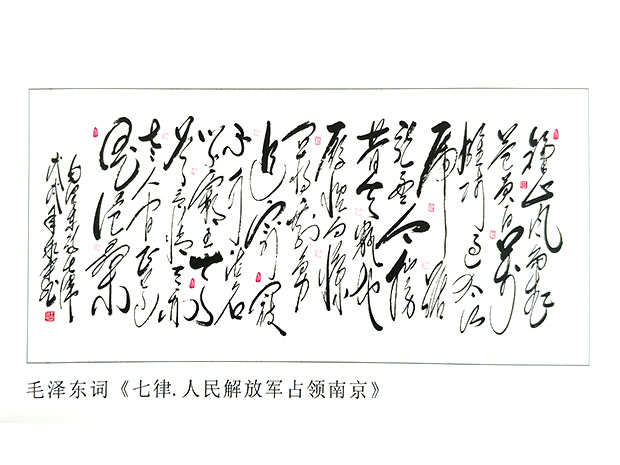 鍾山风雨起
苍黄百万
雄师过大江
虎踞
龙盘今胜
昔天翻地
覆慨而慷
宜将剩勇
追穷寇
不可沽名
学霸王天
若有情天亦
老人间正道
是沧桑
毛泽东词《七律.人民解放军占领南京》